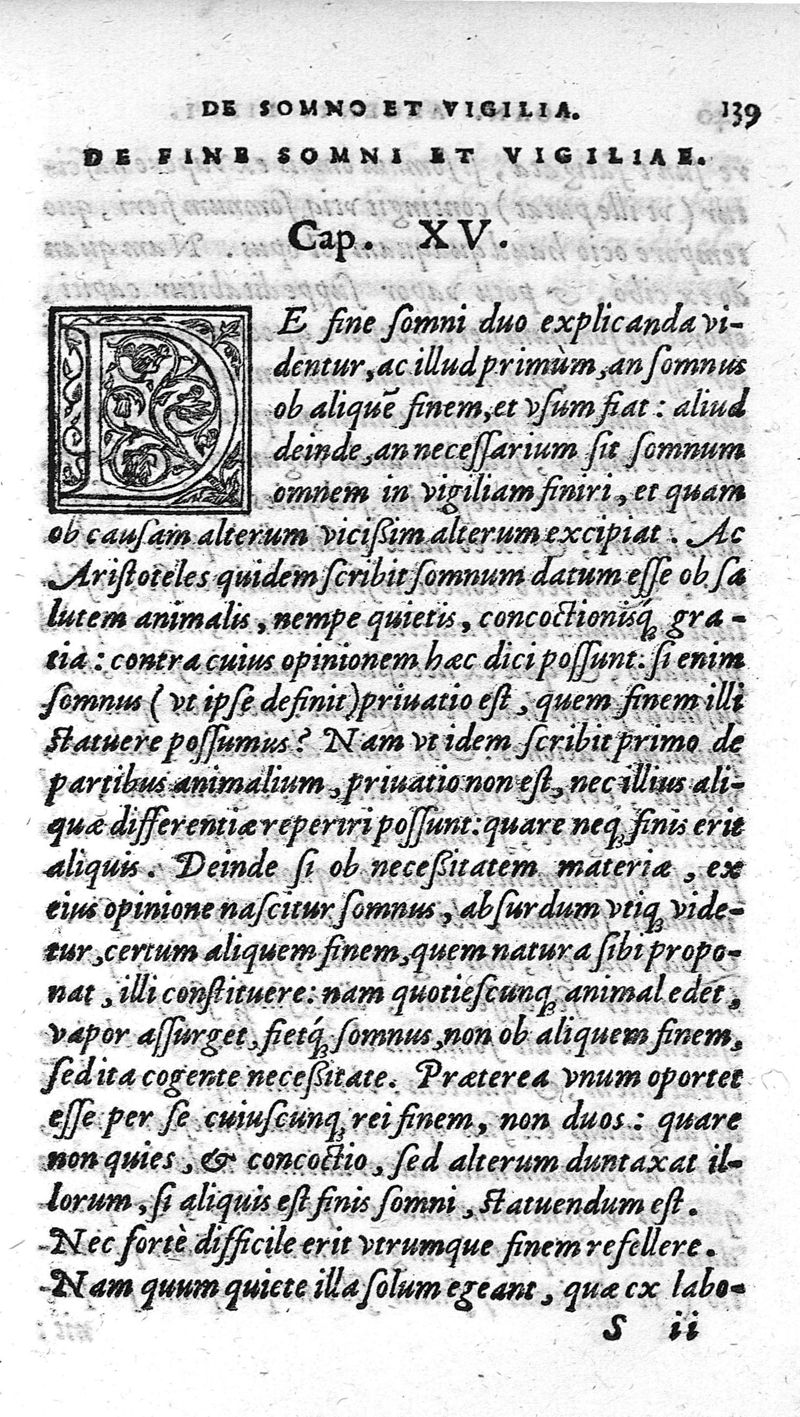 DE SOMNO ET VIGILIA. 139
DE FINE SOMNI ET VIGILIAE.
Cap. XV.
DE fine ſomni duo explicanda vi-
dentur, ac illud primùm, an ſomnus
ob aliquẽ finem, et vſum fiat: aliud
deinde, an neceſſarium ſit ſomnum
omnem in vigiliam finiri, et quam
ob cauſam alterum vicißim alterum excipiat. Ac
Ariſtoteles quidem ſcribit ſomnum datum eſſe ob ſa
lutem animalis, nempe quietis, concoctionisq́; gra-
tia: contra cuius opinionem hæc dici poſſunt: ſi enim
ſomnus (vt ipſe definit) priuatio eſt, quem finem illi
ſtatuere poſſumus? Nam vt idem ſcribit primo de
partibus animalium, priuatio non eſt, nec illius ali-
quæ differentiæ reperiri poſſunt: quare neq; finis erit
aliquis. Deinde ſi ob neceßitatem materiæ, ex
eius opinione naſcitur ſomnus, abſurdum vtiq; vide-
tur, certum aliquem finem, quem natura ſibi propo-
nat, illi conſtituere: nam quotieſcunq; animal edet,
vapor aſſurget, fietq́; ſomnus, non ob aliquem finem,
ſed ita cogente neceßitate. Præterea vnum oportet
eſſe per ſe cuiuſcunq; rei finem, non duos: quare
non quies, & concoctio, ſed alterum duntaxat il-
lorum, ſi aliquis eſt finis ſomni, ſtatuendum eſt.
Nec fortè difficile erit vtrumque finem refellere.
Nam quum quiete illa ſolum egeant, quæ ex labo-
S ii